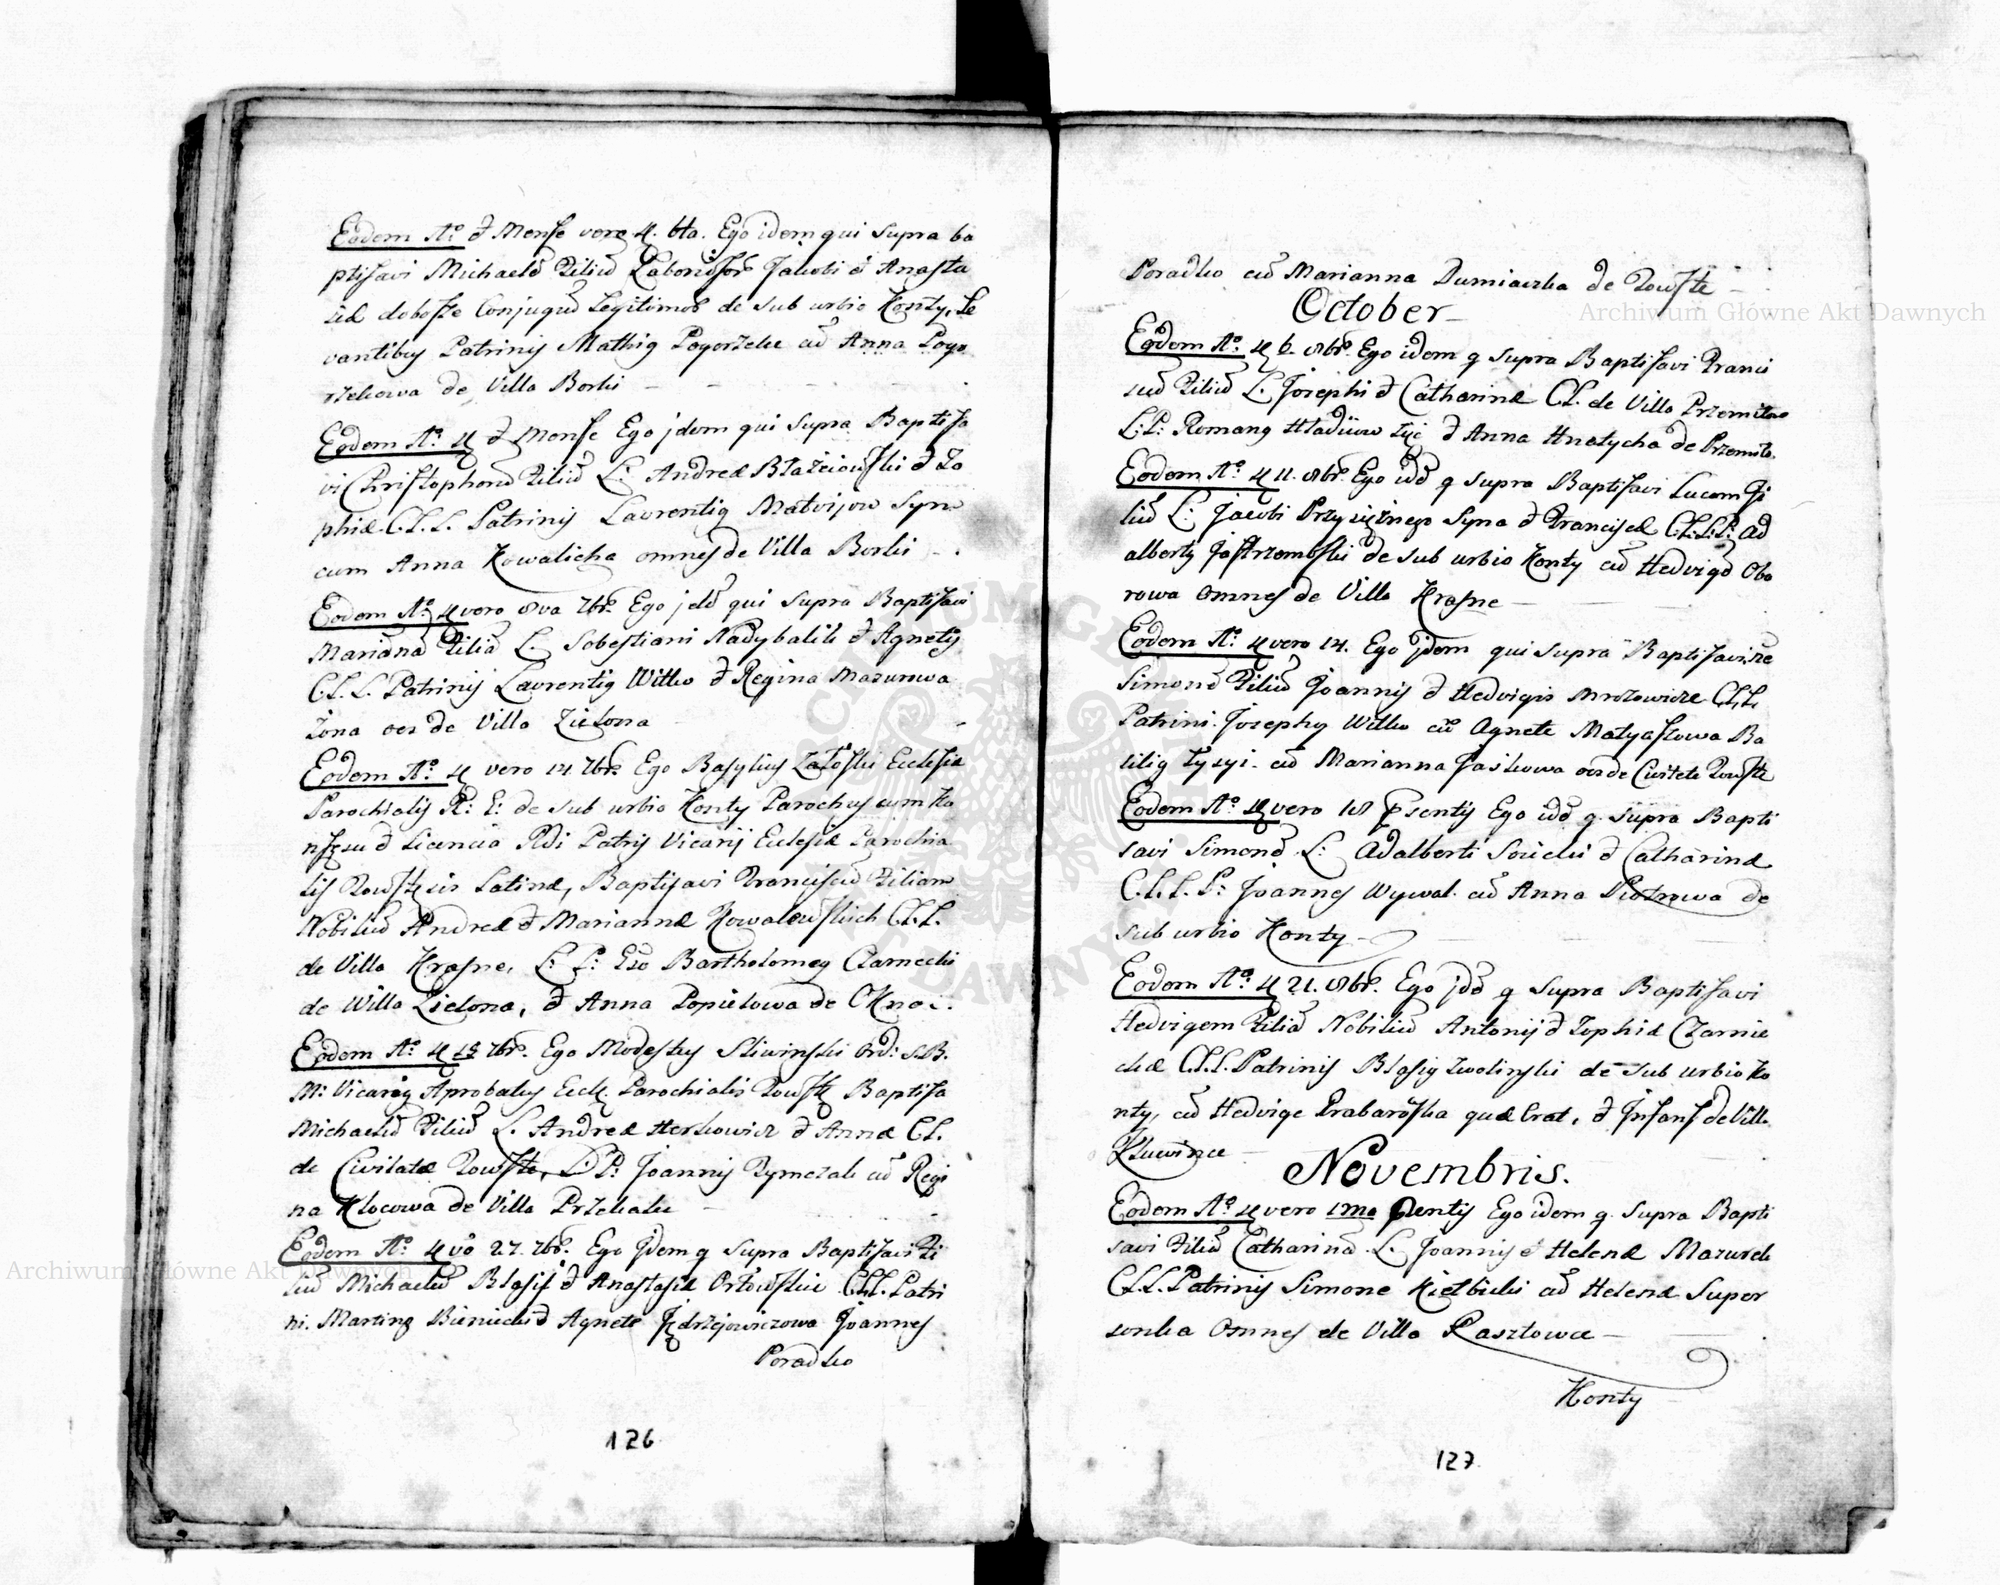 Eodem Aº d Mense vero 4. 6ta. Ego idem qui supra ba
ptisavi Michaelē Filiū Laboriosor Jacobi d Anasta
siæ Conjugū Legitimor de sub urbio Konty, Le
vantibus Patrinis Mathia Pogorzelec cū Anna Pogo
rzelcowa de Villa Borki
Eodem Aº d Mense Ego jdem qui supra Baptisa
vi Christophorū Filiū L: Andreæ Błażeiowski d Zo
phiæ C.L.L. Patrinis Laurentio Matvijow Syn
cum Anna Kowalicha omnes de Villa Borki
Eodem Aº vero 8va 7br. Ego jdē qui supra Baptisavi
Mariānā Filiā L. Sebestiani Nadybalik d Agnetis
C.L.L. Patrinis Laurentio Witko d Regina Mazurowa
Żona de Villa Zielona
Eodem Aº vero 14. 7br. Ego Basylius Załoski Eclesiæ
Parochialis R: G: de sub urbio Konty Parochus cum
d Licencia Rdi Patris Vicarij Eclesiæ Parochia
lis Latinæ, Baptisavi Franciscū Filium
Nobiliū Andreæ d Mariannæ Kowalowskich C.L.L.
de Villa Krasne, L: P: Gso Bartholomeo Czarnecki
de Willa Zielona, d Anna Popielowa de Okno.
Eodem Aº 18 7br. Ego Modestus Sliwinski Ord: S.B.
M: Vicarius Aprobatus Eccle. Parochialis Baptisa
Michaelē Filiū L. Andreæ Herkowicz d Annæ C.L.
de Civitate Touste, L. P: Joannis Rymczak cū Regi
na Klocowa de Villa Przekalec
Eodem Aº vō 27. 7br. Ego jdem q supra Baptisavi Fi
liū Michaelē Blasij d Anastasiæ Orłowskie C.L.L. Patri
ni. Martino Bieniecki d Agnete Jędrzejowiczowa Joannes
Poradko
126
Poradko cū Marianna Dumiaczka de Touste
October
Eodem Aº 6. 8br. Ego idem q supra Baptisavi Franci
scū Filiū L. Josephi d Catharinæ C.L. de Villa Przemiłow
L.P: Romano Hładiiow d Anna Hnatycha de Przemiło.
Eodem Aº 11. 8br. Ego idē q supra Baptisavi Lucam Fi
liū L: Jacobi Przysiężnego Syna d Franciscæ C.L.L.P: Ad
alberto Jastrzembski de sub urbio Konty cū Hedvige Obo
rowa omnes de Villa Krasne
Eodem Aº vero 14. Ego jdem qui supra Baptisavi
Simonē Filiū Joannis d Hedvigis Mrozowicze C.L.L.
Patrini. Josepho Witko cū Agnete Matyaszowa Ba
silio Łysyi. cū Marianna Jaskowa de Civitete Touste
Eodem Aº vero 18 Psentis Ego idē q. supra Bapti
savi Simonē L: Adalberti Sozicki d Catharinæ
C.L.L. P: Joannes Wywal. cū Anna Piotrowa de
sub urbio Konty
Eodem Aº 21. 8br. Ego jdē q supra Baptisavi
Hedvigem Filiā Nobiliū Antonij d Zophiæ Czarnie
ckie C.L.L. Patrinis Blasio Zwolinski de sub urbio Ko
nty, cū Hedvige Grabarōska quæ erat, d Infans de Villa
Kluwince
Novembris.
Eodem Aº vero 1ma Psentis Ego idem q. supra Bapti
savi Filiā Catharinā L. Joannis d Helenæ Mazurek
C.L.L. Patrinis Simone Kiełbicki cū Helenæ Super
sonka Omnes de Villa Rasztowce
Konty
127
Archiwum Główne Akt Dawnych
Archiwum Główne Akt Dawnych
ARCHIWUM GŁÓWNE AKT DAWNYCH